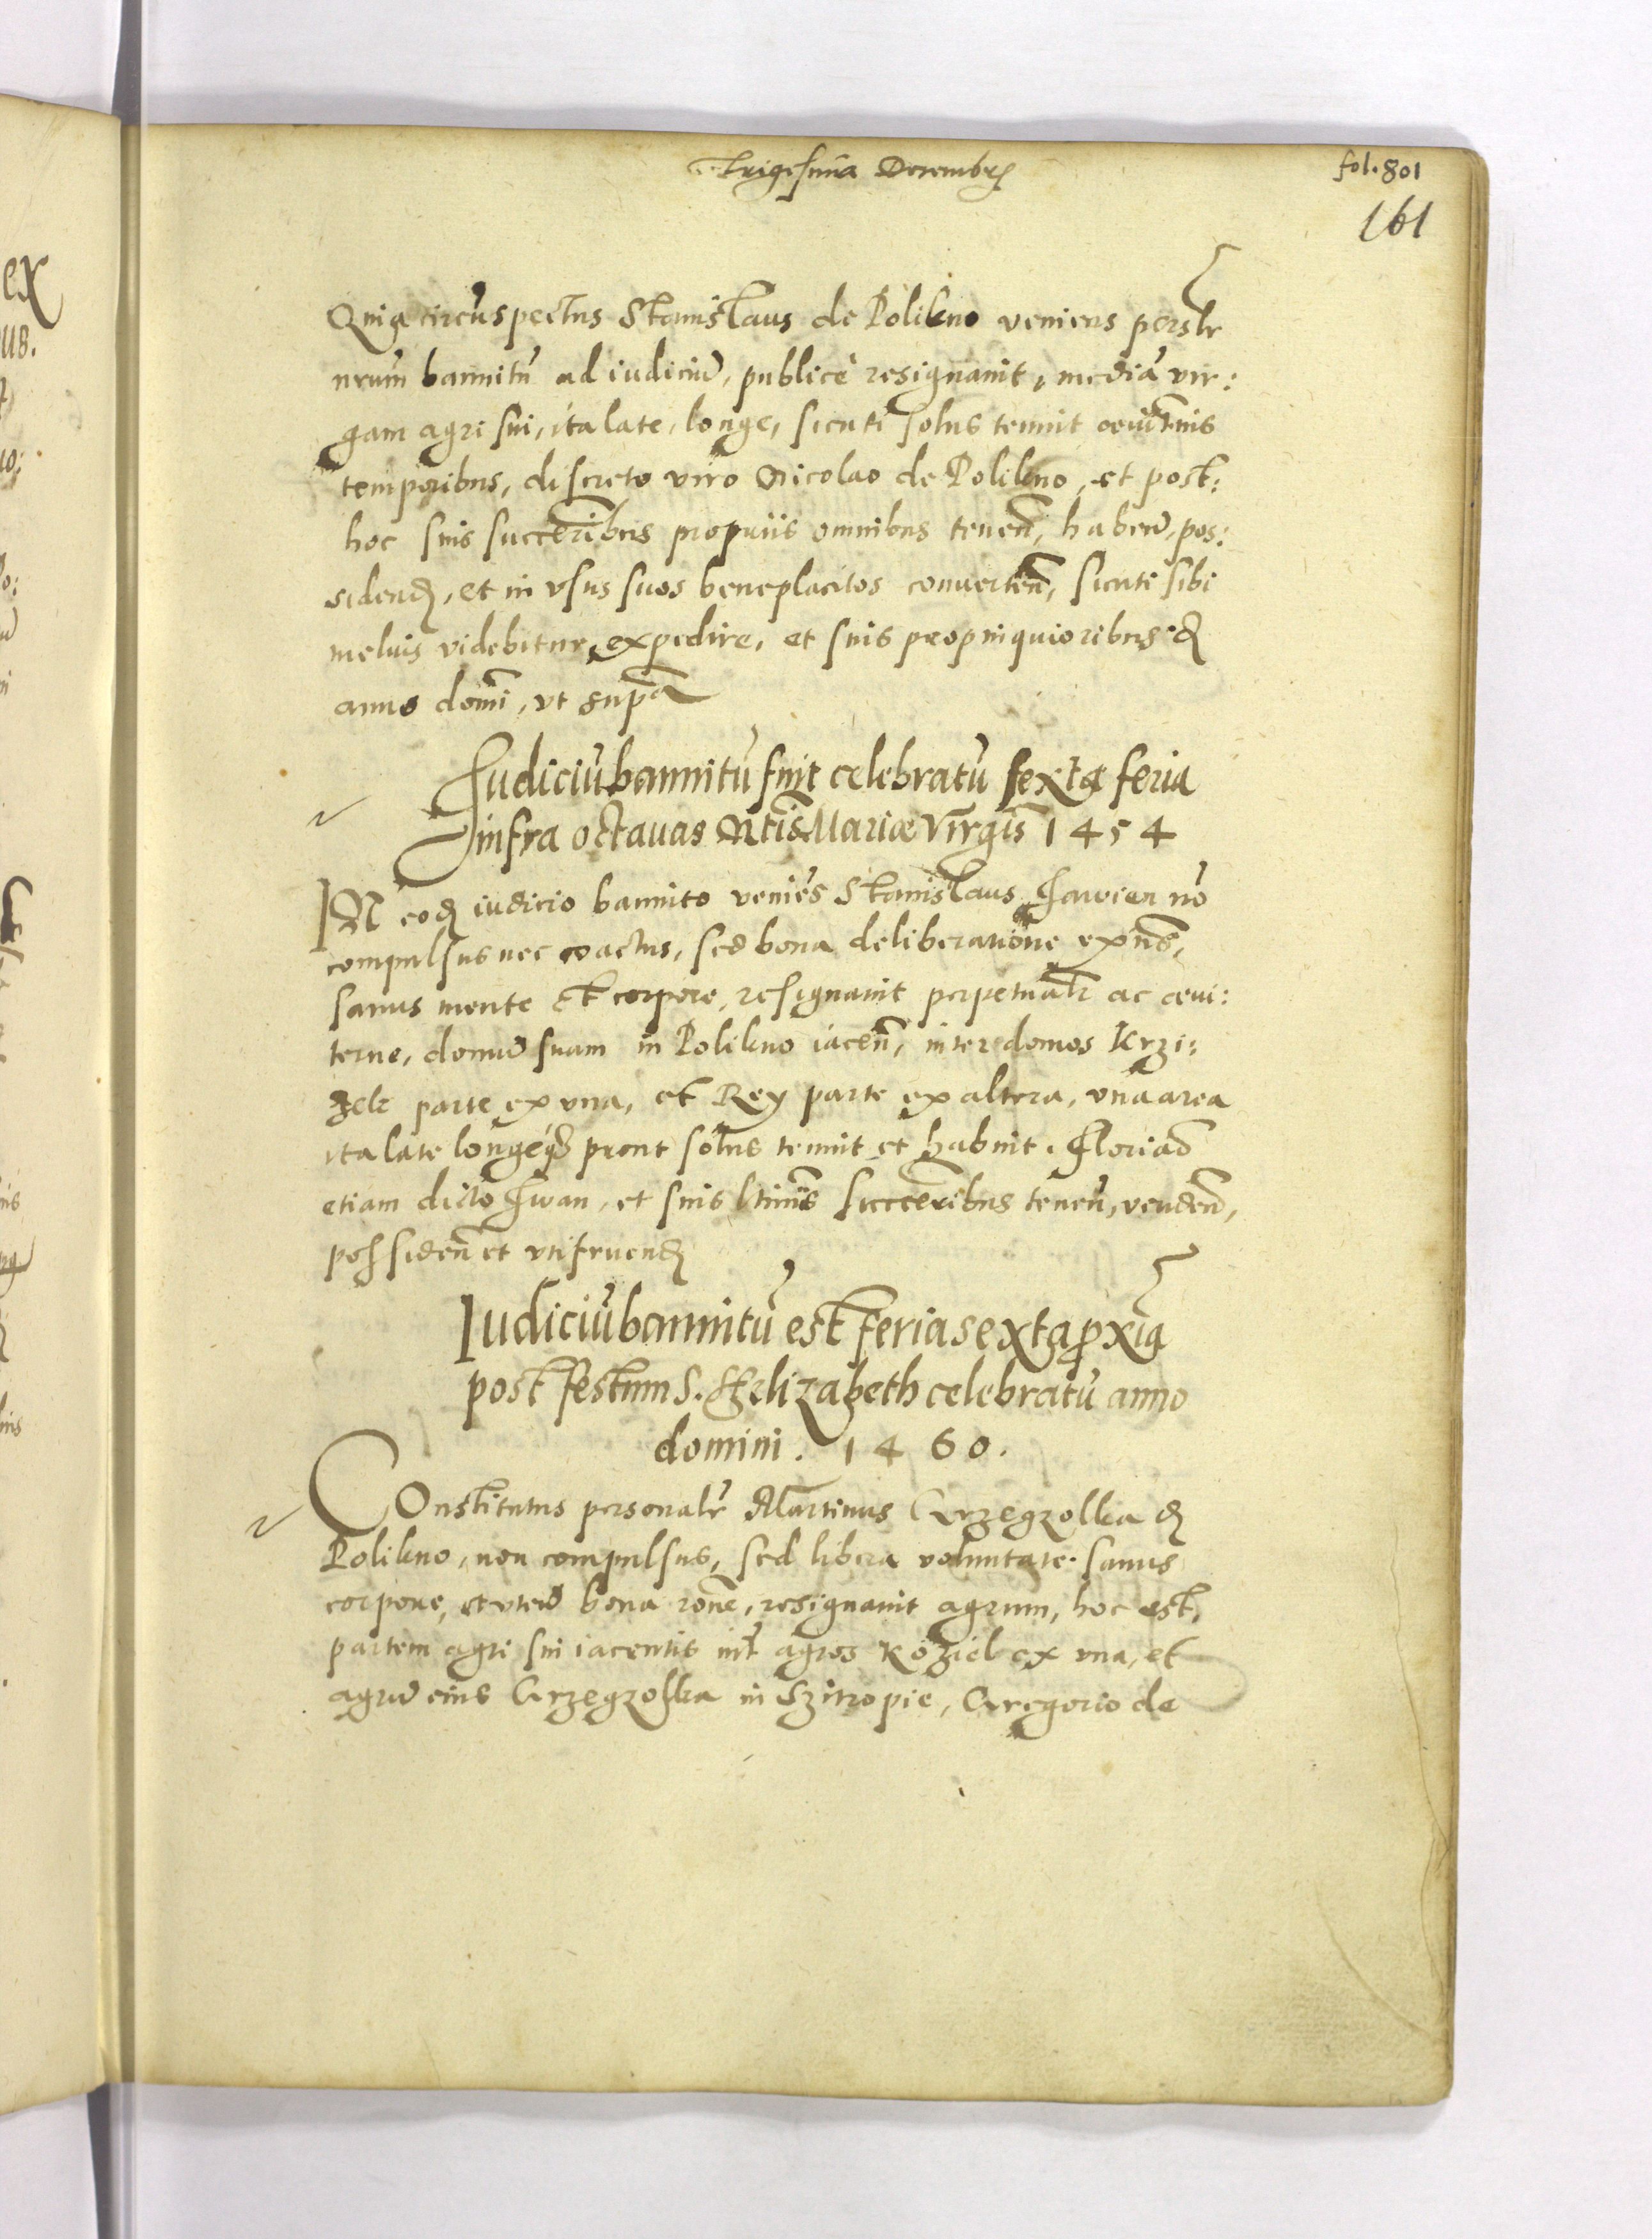 Trigesima Decembr
fol. 801
161
Quia circūspectus Stanislaus de Polikno veniens persolr
nrum bannitū ad iudiciū, publicè resignauit, mediā vir:
gam agri sui, ita late, longe, sicuti solus tenuit aeuitnis
temporibus, discreto viro Nicolao de Polikno, et post:
hoc suis succeribus propriis omnibus tenen, haben, pos:
siden, et in vsus suos beneplacitos conuerten, sicuti sibi
melius videbitur, expedire, et suis propinquioribus
anno domi, vt supa
Iudiciū bannitū fuit celebratū sexta feria
infra octauas Ntis Mariae Virgis 1454
IN eod iudicio bannito veniēs Stanislaus Jawien nō
compulsus nec coactus, sed bona deliberatione exns,
sanus mente et corpore, resignauit perpetualr ac aeui:
terne, domū suam in Polikno iacen, inter domos Krzi:
zek parte ex vna, et Rey parte ex altera, vna area
ita late longeq prout solus tenuit et habuit. Floriao
etiam dicto Iwan, et suis ltimis succeribus tenen, venden,
possiden et vtifruend
Iudiciū bannitū est feria sexta pxia
post festum S. Elizabeth celebratū anno
domini. 1460.
COnstitutus personalr Martinus Grzegzolka d
Polikno, non compulsus, sed libera voluntate. sanus
corpore, et vten bona rone, resignauit agrum, hoc est,
partem agri sui iacentis int agros Koziel ex vna, et
agrū eius Grzegzolka in Szitropie, Gregorio de